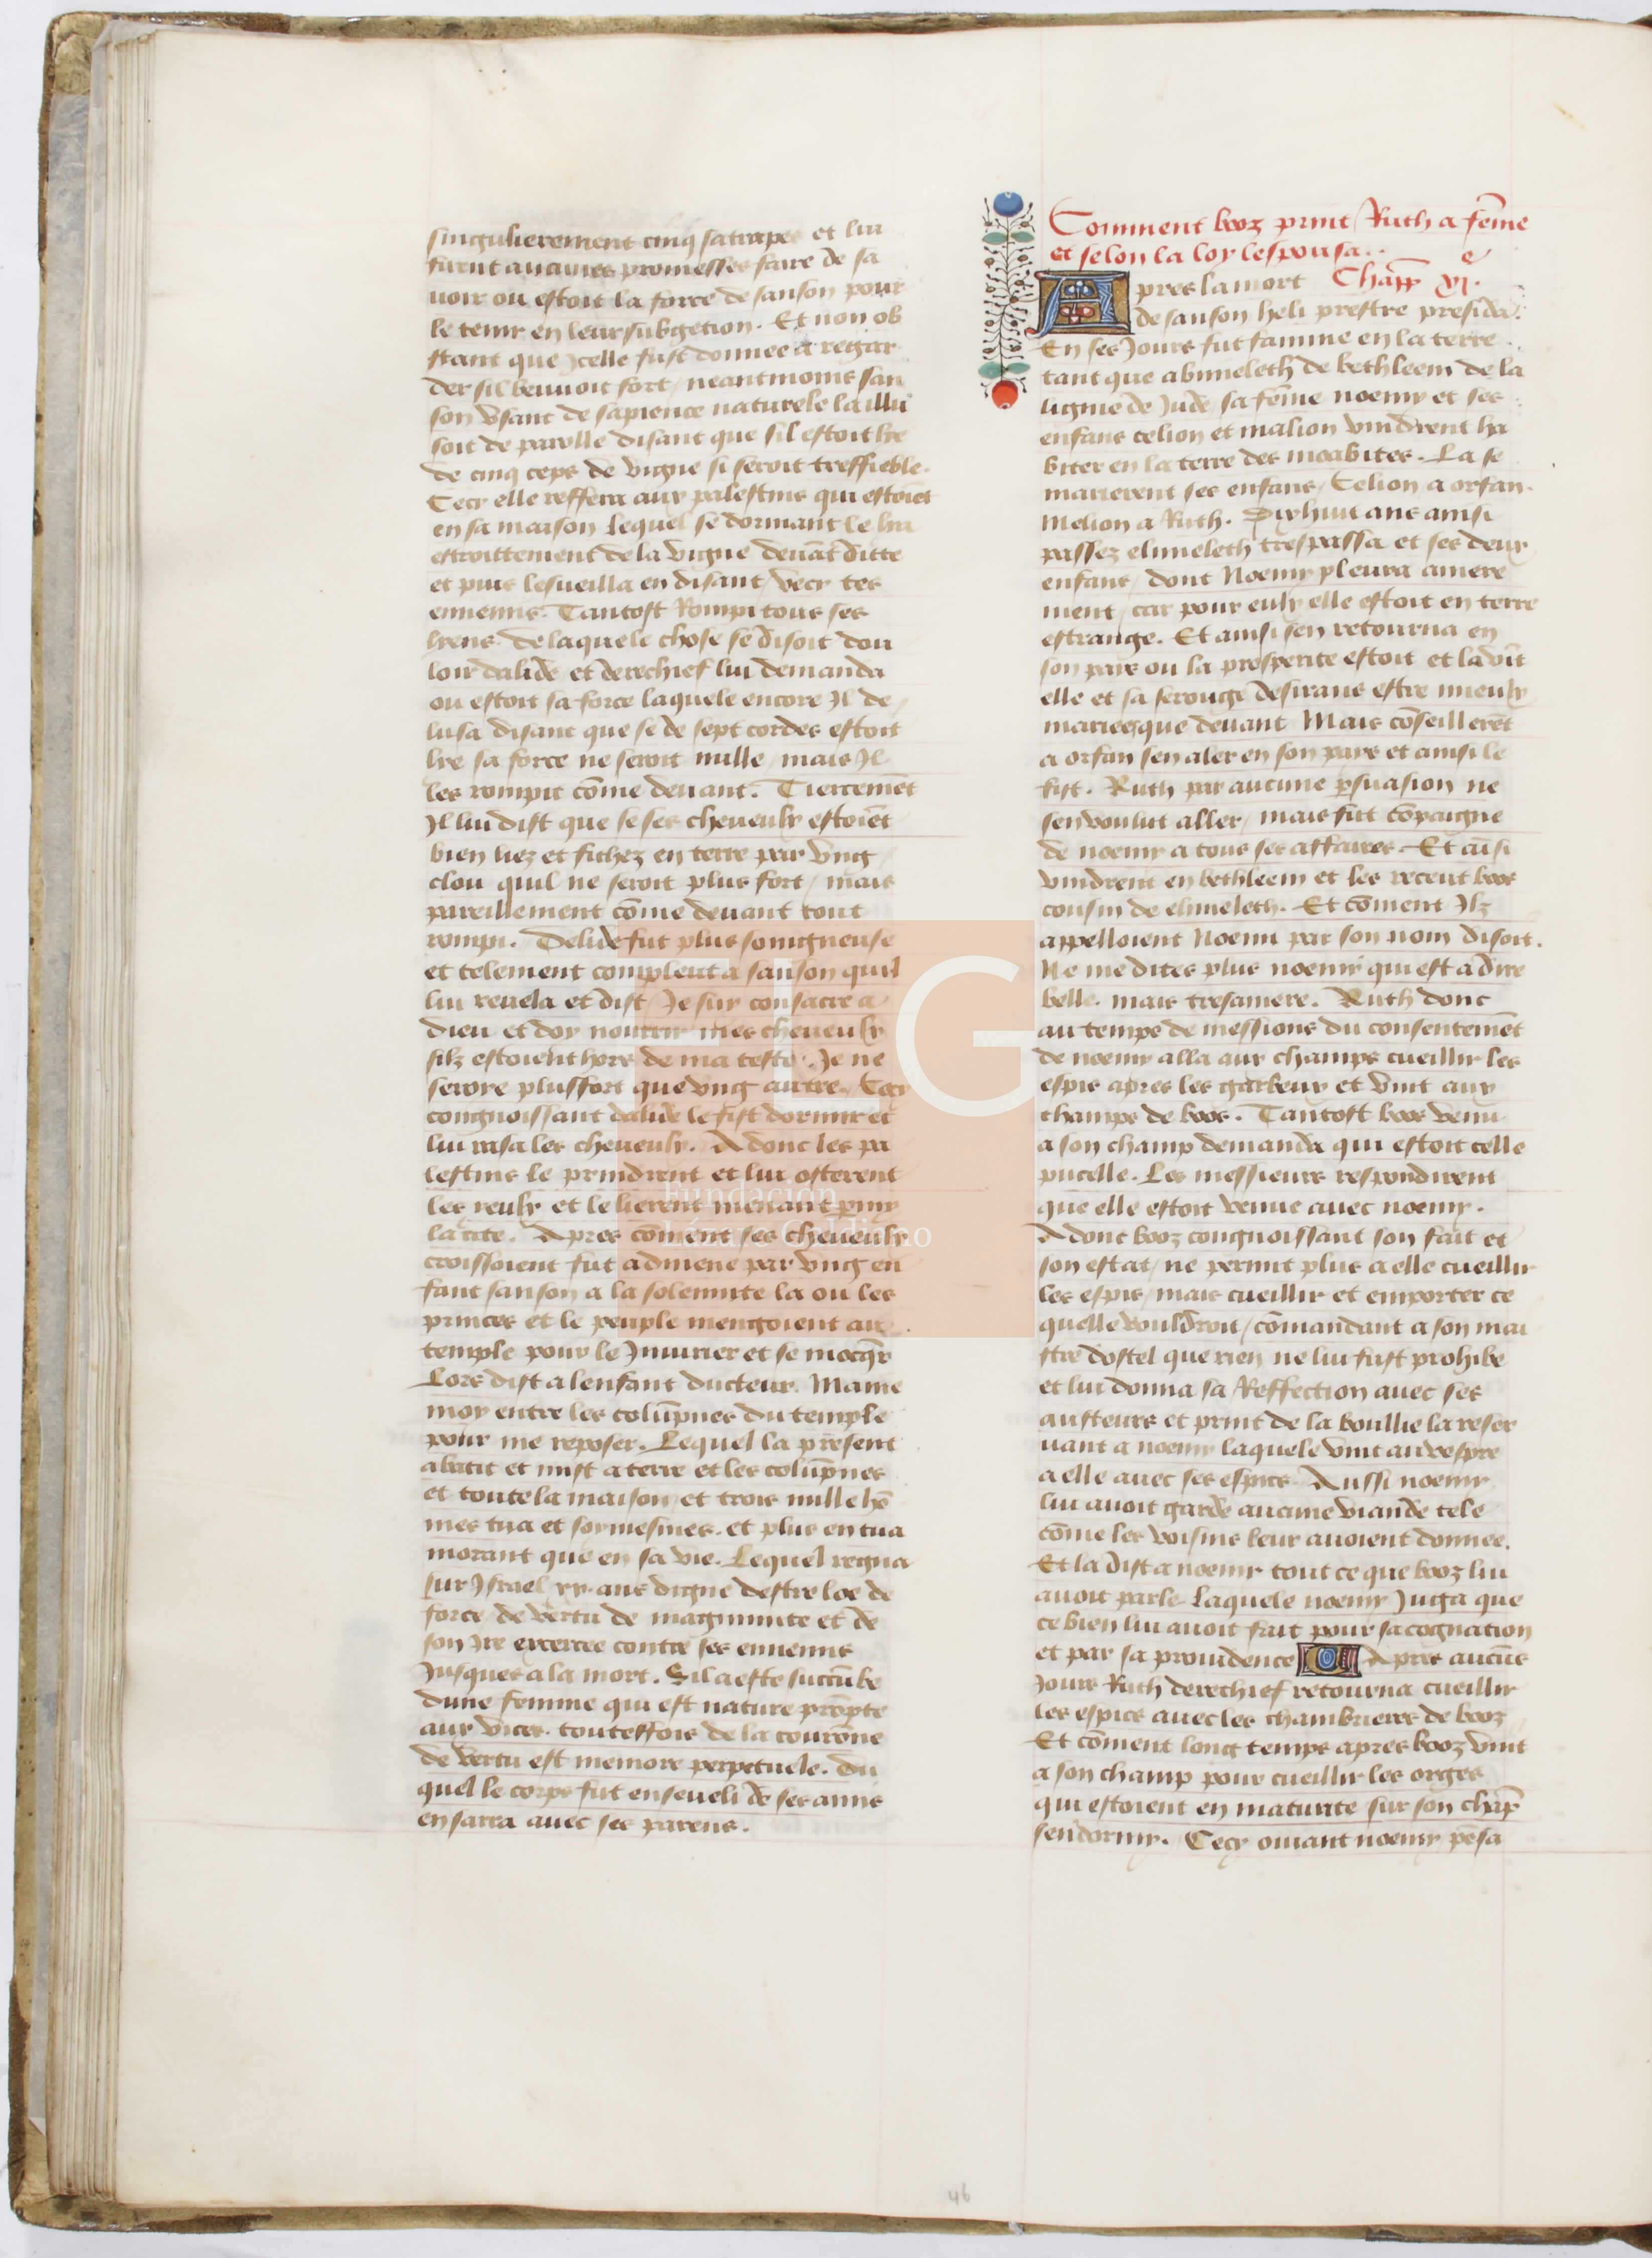 singulierement cinq satrapes et lui
furent aucunes promesses faire de sa
uoir ou estoit la force de sanson pour
le tenir en leur subgetion. Et non ob
stant que Icelle fust donnee a regar
der sil beuuoit fort / neantmoins san
son vsant de sapience naturele la illu
soit de parolle disant que sil estoit lye
de cinq ceps de vigne si seroit tresfieble.
Cecy elle reffera aux palestins qui estoiēt
en sa maison lequel se dormant le lia
estroittement de la vigne deuāt ditte
et puis lesueilla en disant / vecy tes
ennemis. Tantost Rompi tous ses
lyens de laquele chose se disoit dou
loir dalide et derechief lui demanda
ou estoit sa force laquele encore Il de
lusa disant que se de sept cordes estoit
lye sa force ne seroit nulle / mais Il
les rompit cōme deuant. Tiercemēt
Il lui dist que se ses cheueulx estoiēt
bien liez et fichez en terre par vng
clou quil ne seroit plus fort / mais
pareillement cōme deuant tout
rompi. Delide fut plus songneuse
et telement compleut a sanson quil
lui reuela et dist Je suy consacre a
dieu et doy nourrir mes cheueulx
silz estoient hors de ma teste. Je ne
seroye plusfort que vng autre. Cecy
congnoissant dalide le fist dormir et
lui rasa les cheueulx. Adonc les pa
lestins le prindrent et lui osterent
les yeulx et le lierent menant p̄my
la cite. Apres cōment ses cheueulx
croissoient fut admene par vng en
fant sanson a la solennite la ou les
princes et le peuple mengoient au
temple pour le Iniurier et se mocq̄r
Lors dist a lenfant ducteur. Maine
moy entre les colūpnes du temple
pour me reposer. Lequel la present
abatit et mist a terre et les colūpnes
et toute la maison et trois mille hō
mes tua et soymesmes. et plus en tua
morant que en sa vie. Lequel regna
sur Israel xx. ans digne destre loe de
force de vertu de magnimite et de
son Ire exercee contre ses ennemis
Jusques a la mort. Sil a este succūbe
dune femme qui est nature prōpte
aux vices. touteffois de la courōne
de vertu est memore perpetuele. Du
quel le corps fut enseueli de ses amis
en sarra auec ses parens.
Comment booz print Ruth a fēme
et selon la loy lespousa..
Chapp̄ xi.e
Apres la mort
de sanson heli prestre presida.
En ses Jours fut famine en la terre
tant que abimeleth de bethleem de la
lignie de Jude sa fēme noemy et ses
enfans celion et malion vindrent ha
biter en la terre des moabites. La se
marierent ses enfans / Celion a orfan.
Melion a Ruth. Dixhuit ans ainsi
passez elimeleth trespassa et ses deux
enfans / dont Noemy pleura amere
ment / car pour eulx elle estoit en terre
estrange. Et ainsi sen retourna en
son pais ou la prosperite estoit et la vīt
elle et sa serouge desirans estre mieulx
mariees que deuant Mais cōseillerēt
a orfan sen aler en son pays et ainsi le
fist. Ruth par aucune p̄suasion ne
sen voulut aller / mais fut cōpaigne
de noemy a tous ses affaires. Et aīsi
vindrent en bethleem et les receut boos
cousin de elimeleth. Et cōment Ilz
appelloient Noemi par son nom disoit.
Ne me dites plus noemy qui est a dire
belle. mais tresamere. Ruth donc
au temps de messions du consentemēt
de noemy alla aux champs cueillir les
espis apres les garbeux et vint aux
champs de boos. Tantost boos venu
a son champ demanda qui estoit celle
pucelle. Les messieurs respondirent
que elle estoit venue auec noemy.
Adonc booz congnoissant son fait et
son estat / ne permit plus a elle cueillir
les espis / mais cueillir et emporter ce
quelle vouldroit / cōmandant a son mai
stre dostel que rien ne lui fust prohibe
et lui donna sa Reffection auec ses
austeurs et print de la boullie la reser
uant a noemy laquele vint au vespre
a elle auec ses espics. Aussi noemy
lui auoit garde aucune viande tele
cōme les voisins leur auoient donnee.
Et la dist a noemy tout ce que booz lui
auoit parle. Laquele noemy Juga que
ce bien lui auoit fait pour sa cognation
et par sa prouidence Apres aucūs
Jours Ruth derechief retourna cueillir
les espics auec les chambrieres de booz
Et cōment long temps apres booz vint
a son champ pour cueillir les orges
qui estoient en maturite sur son chāp
sendormy. Cecy oiuant noemy pēsa
Fundación
Lázaro Galdiano
LG
46